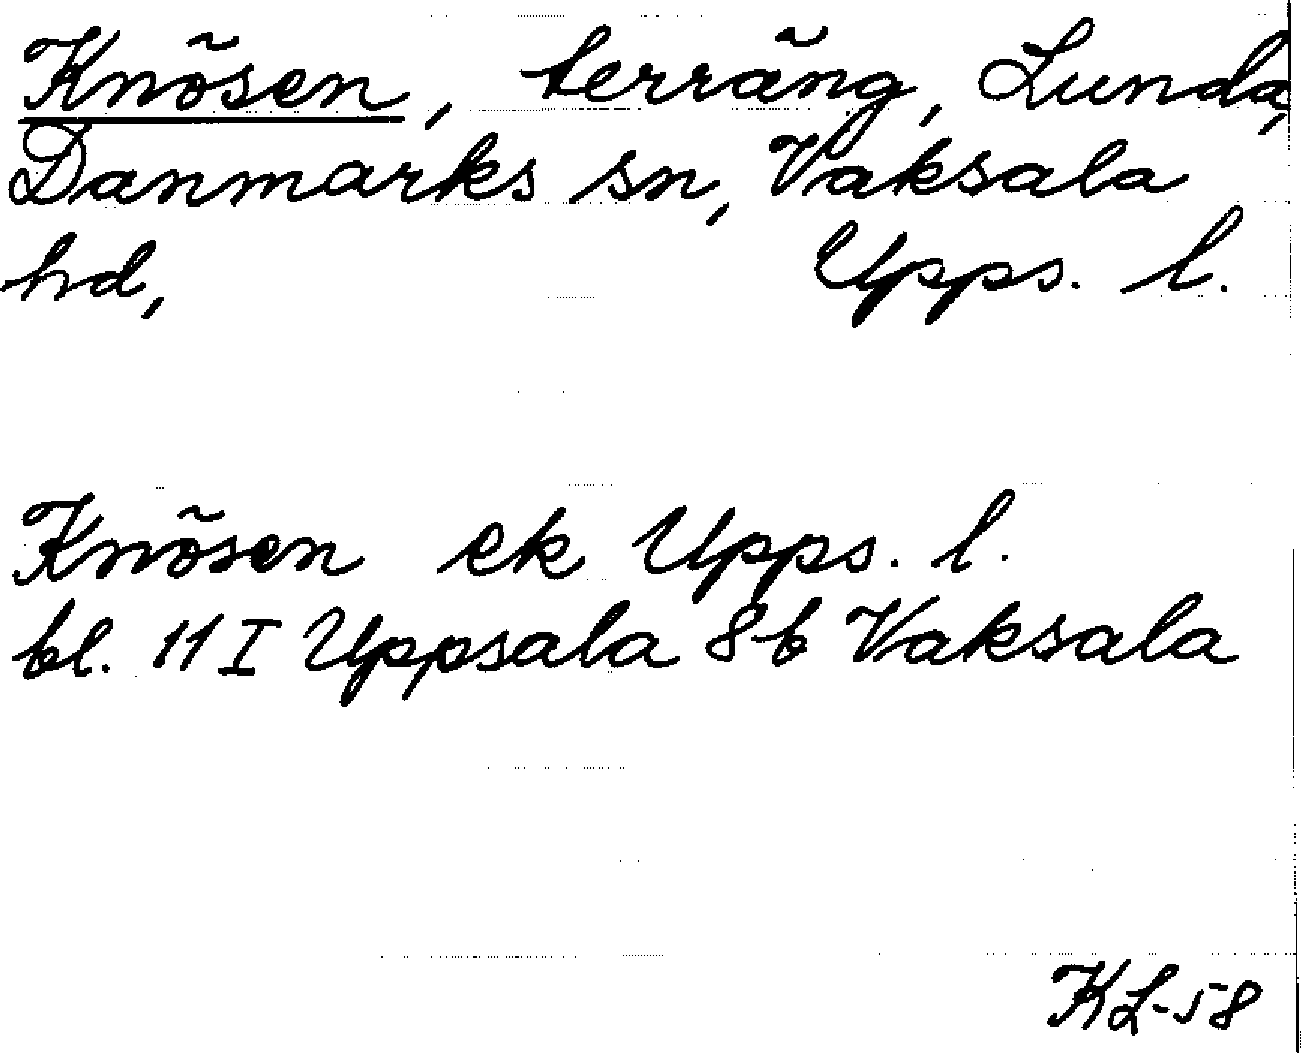 Knösen, terräng, Lunda,
Danmarks sn, Vaksala
hd, Upps. l.
Knösen ek Upps. l.
bl. 11 I Uppsala 8b Vaksala
KL-58